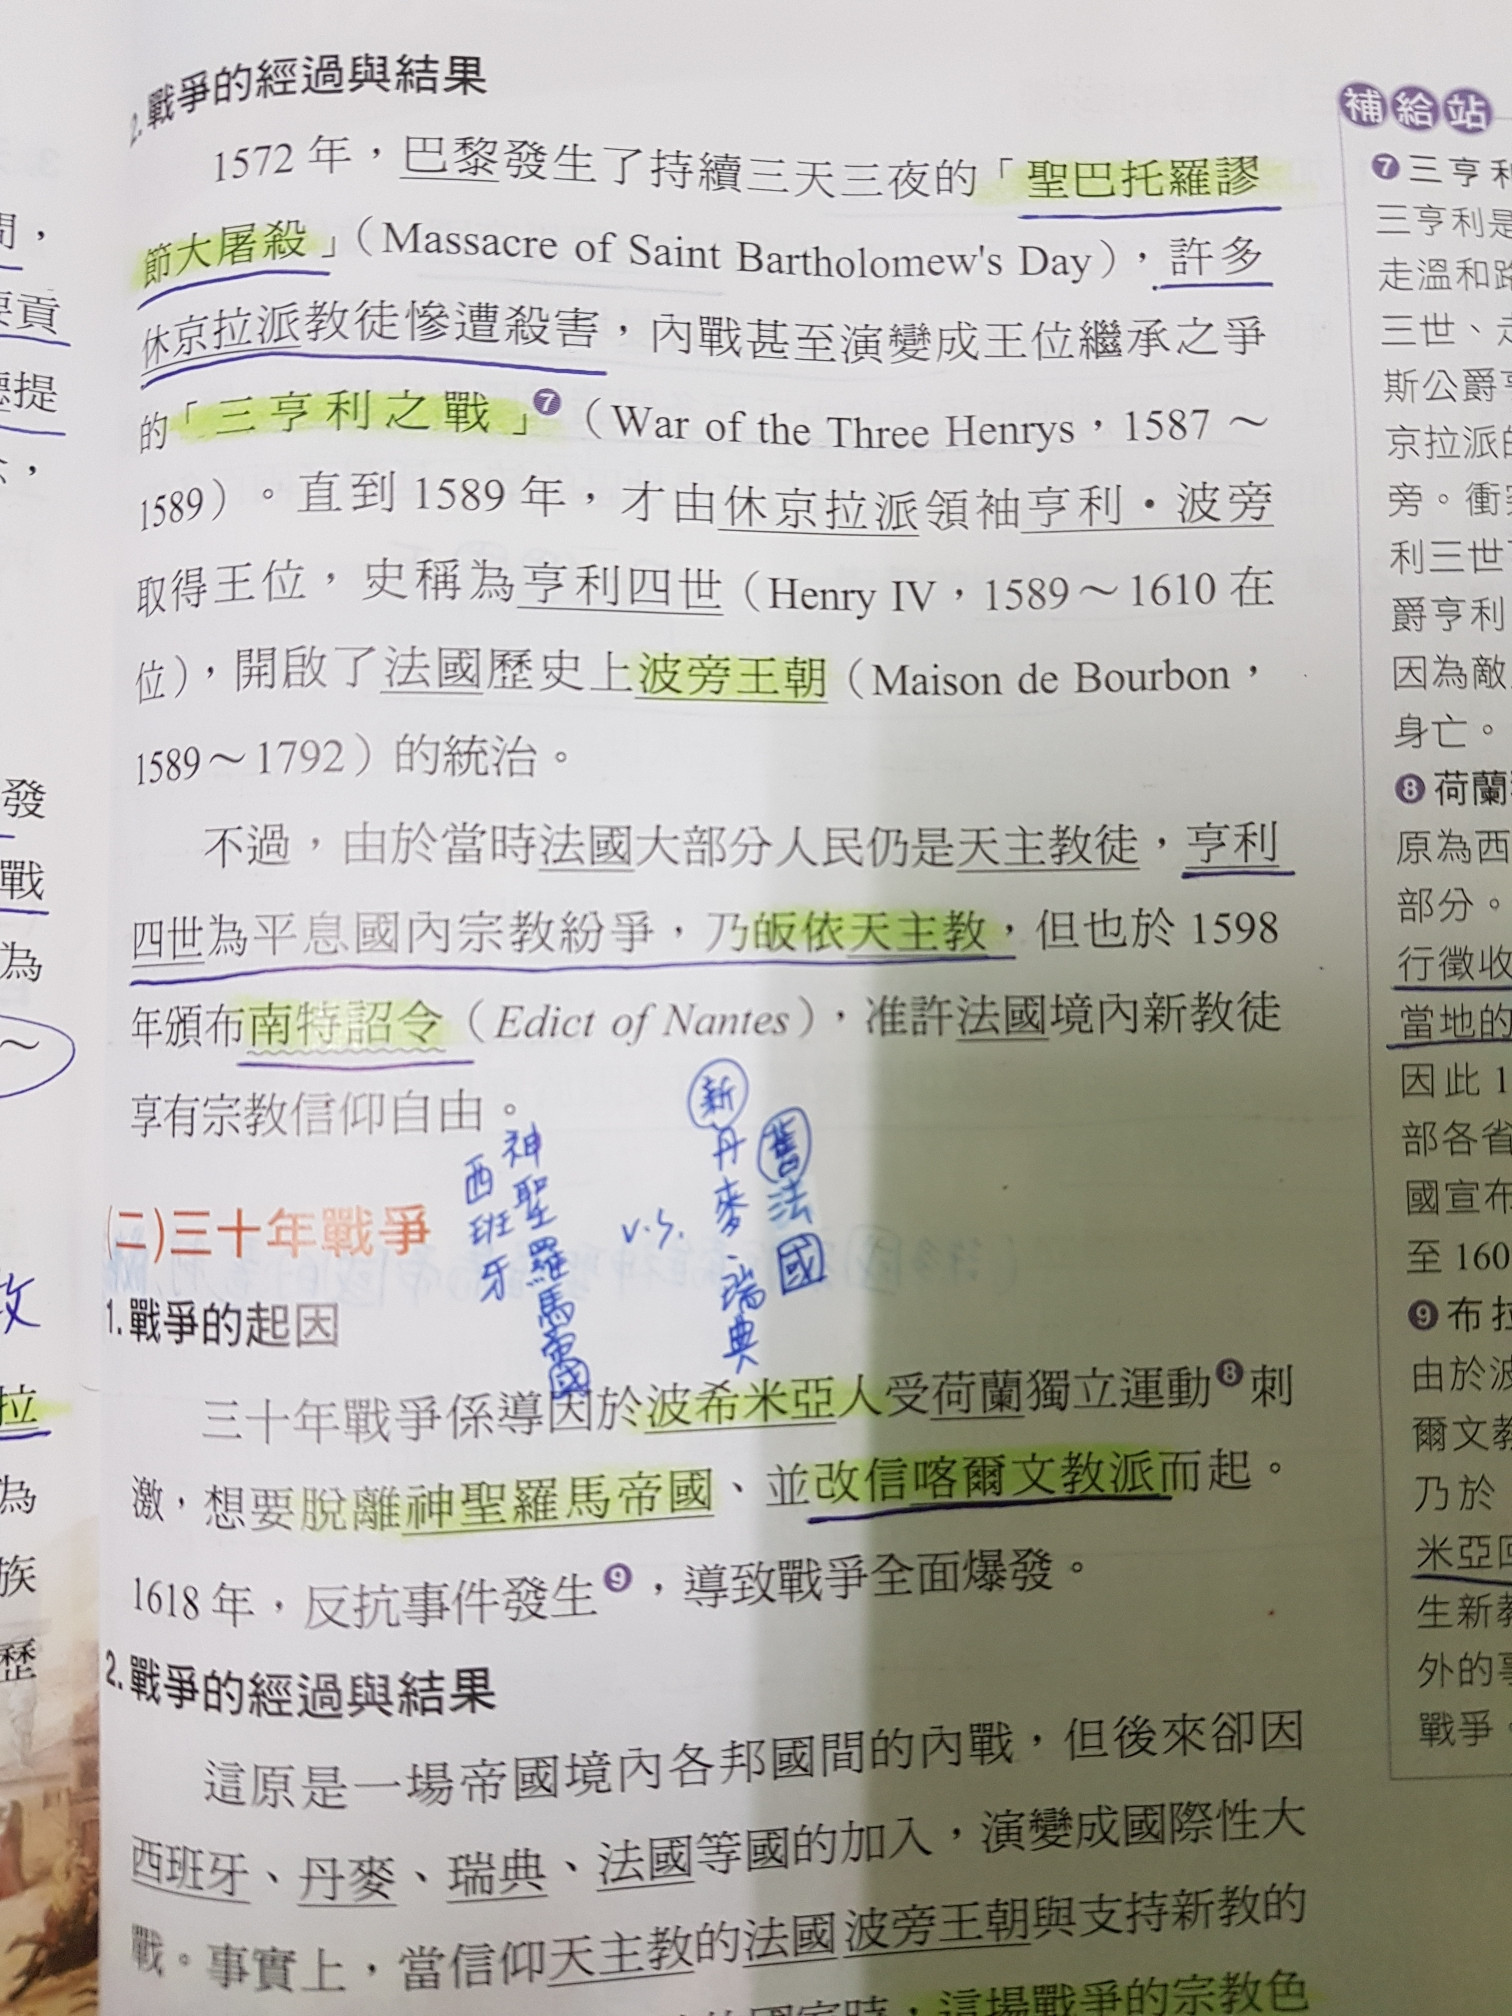 2.戰爭的經過與結果
1572年，巴黎發生了持續三天三夜的「聖巴托羅謬
節大屠殺」（Massacre of Saint Bartholomew's Day），許多
休京拉派教徒慘遭殺害，內戰甚至演變成王位繼承之爭
的「三亨利之戰」❼（War of the Three Henrys，1587～
1589）。直到1589年，才由休京拉派領袖亨利·波旁
取得王位，史稱為亨利四世（Henry IV，1589～1610在
位），開啟了法國歷史上波旁王朝（Maison de Bourbon，
1589～1792）的統治。
不過，由於當時法國大部分人民仍是天主教徒，亨利
四世為平息國內宗教紛爭，乃皈依天主教，但也於1598
年頒布南特詔令（Edict of Nantes），准許法國境內新教徒
享有宗教信仰自由。
神聖羅馬帝國
西班牙
v.s.
新丹麥.瑞典
舊法國
(二)三十年戰爭
1.戰爭的起因
三十年戰爭係導因於波希米亞人受荷蘭獨立運動❽刺
激，想要脫離神聖羅馬帝國、並改信喀爾文教派而起。
1618年，反抗事件發生❾，導致戰爭全面爆發。
2.戰爭的經過與結果
這原是一場帝國境內各邦國間的內戰，但後來卻因
西班牙、丹麥、瑞典、法國等國的加入，演變成國際性大
戰。事實上，當信仰天主教的法國波旁王朝與支持新教的
，這場戰爭的宗教色
補給站
❼三亨利
三亨利是
走溫和路
三世、走
斯公爵亨
京拉派的
旁。衝突
利三世
爵亨利
因為敵
身亡。
❽荷蘭
原為西
部分。
行徵收
當地的
因此1
部各省
國宣布
至160
❾布拉
由於波
爾文教
乃於
米亞
生新教
外的事
戰爭。
間，
要貢
提
，
發
戰
為
～
教
拉
為
族
歷